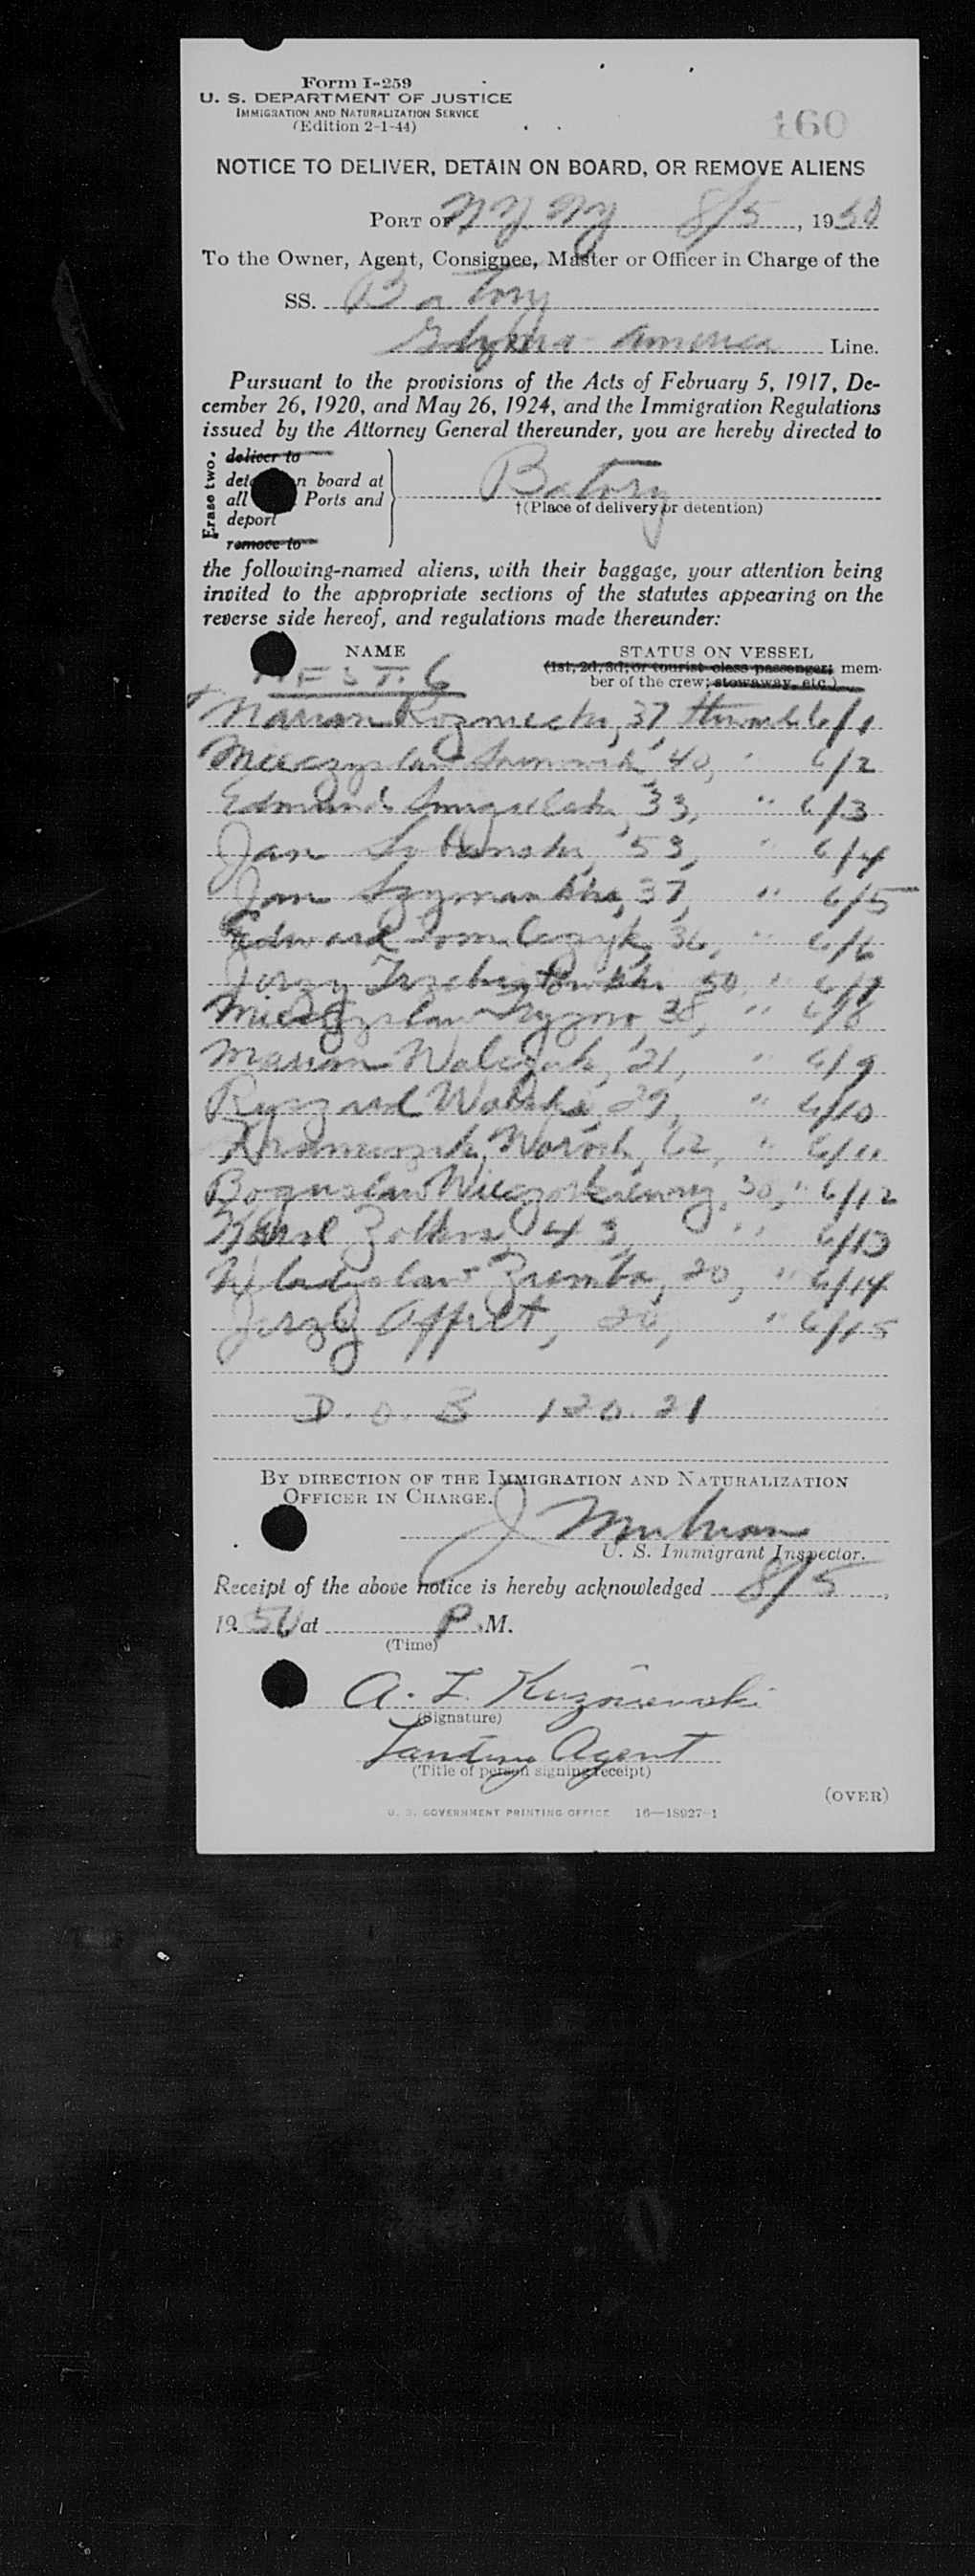 Form I-259
U. S. DEPARTMENT OF JUSTICE
IMMIGRATION AND NATURALIZATION SERVICE
(Edition 2-1-44)
160
NOTICE TO DELIVER, DETAIN ON BOARD, OR REMOVE ALIENS
PORT OF N Y. N Y 8/5, 1950
To the Owner, Agent, Consignee, Master or Officer in Charge of the
SS. Batory
Gdynia America Line.
Pursuant to the provisions of the Acts of February 5, 1917, De-
cember 26, 1920, and May 26, 1924, and the Immigration Regulations
issued by the Attorney General thereunder, you are hereby directed to
Erase two.
deliver to
n board at
all Ports and
deport
remove to
Batory
†(Place of delivery or detention)
the following-named aliens, with their baggage, your attention being
invited to the appropriate sections of the statutes appearing on the
reverse side hereof, and regulations made thereunder:
NAME STATUS ON VESSEL
(1st, 2d, 3d, or tourist class passenger; mem-
ber of the crew; stowaway, etc.)
6
Marian 37, 6/1
Mieczyslaw 40, " 6/2
Edmund 33, " 6/3
Jan 53, " 6/4
Jan 37, " 6/5
Edward 36, " 6/6
Jerzy 50 " 6/7
Mieczyslaw 38, " 6/8
Marian Walczak, 21, " 6/9
Ryszard 29, " 6/10
62, " 6/11
Boguslaw 30, " 6/12
Karol 43, " 6/13
Wladyslaw Zremba, 20, " 6/14
Jerzy Affelt, 20, " 6/15
D. O. B 120.21
BY DIRECTION OF THE IMMIGRATION AND NATURALIZATION
OFFICER IN CHARGE.
J
U. S. Immigrant Inspector.
Receipt of the above notice is hereby acknowledged 8/5,
1950 at P.M.
(Time)
A. Z. Kuzniewski
(Signature)
Landing Agent
(Title of person signing receipt)
(OVER)
U. S. GOVERNMENT PRINTING OFFICE 16—18927-1